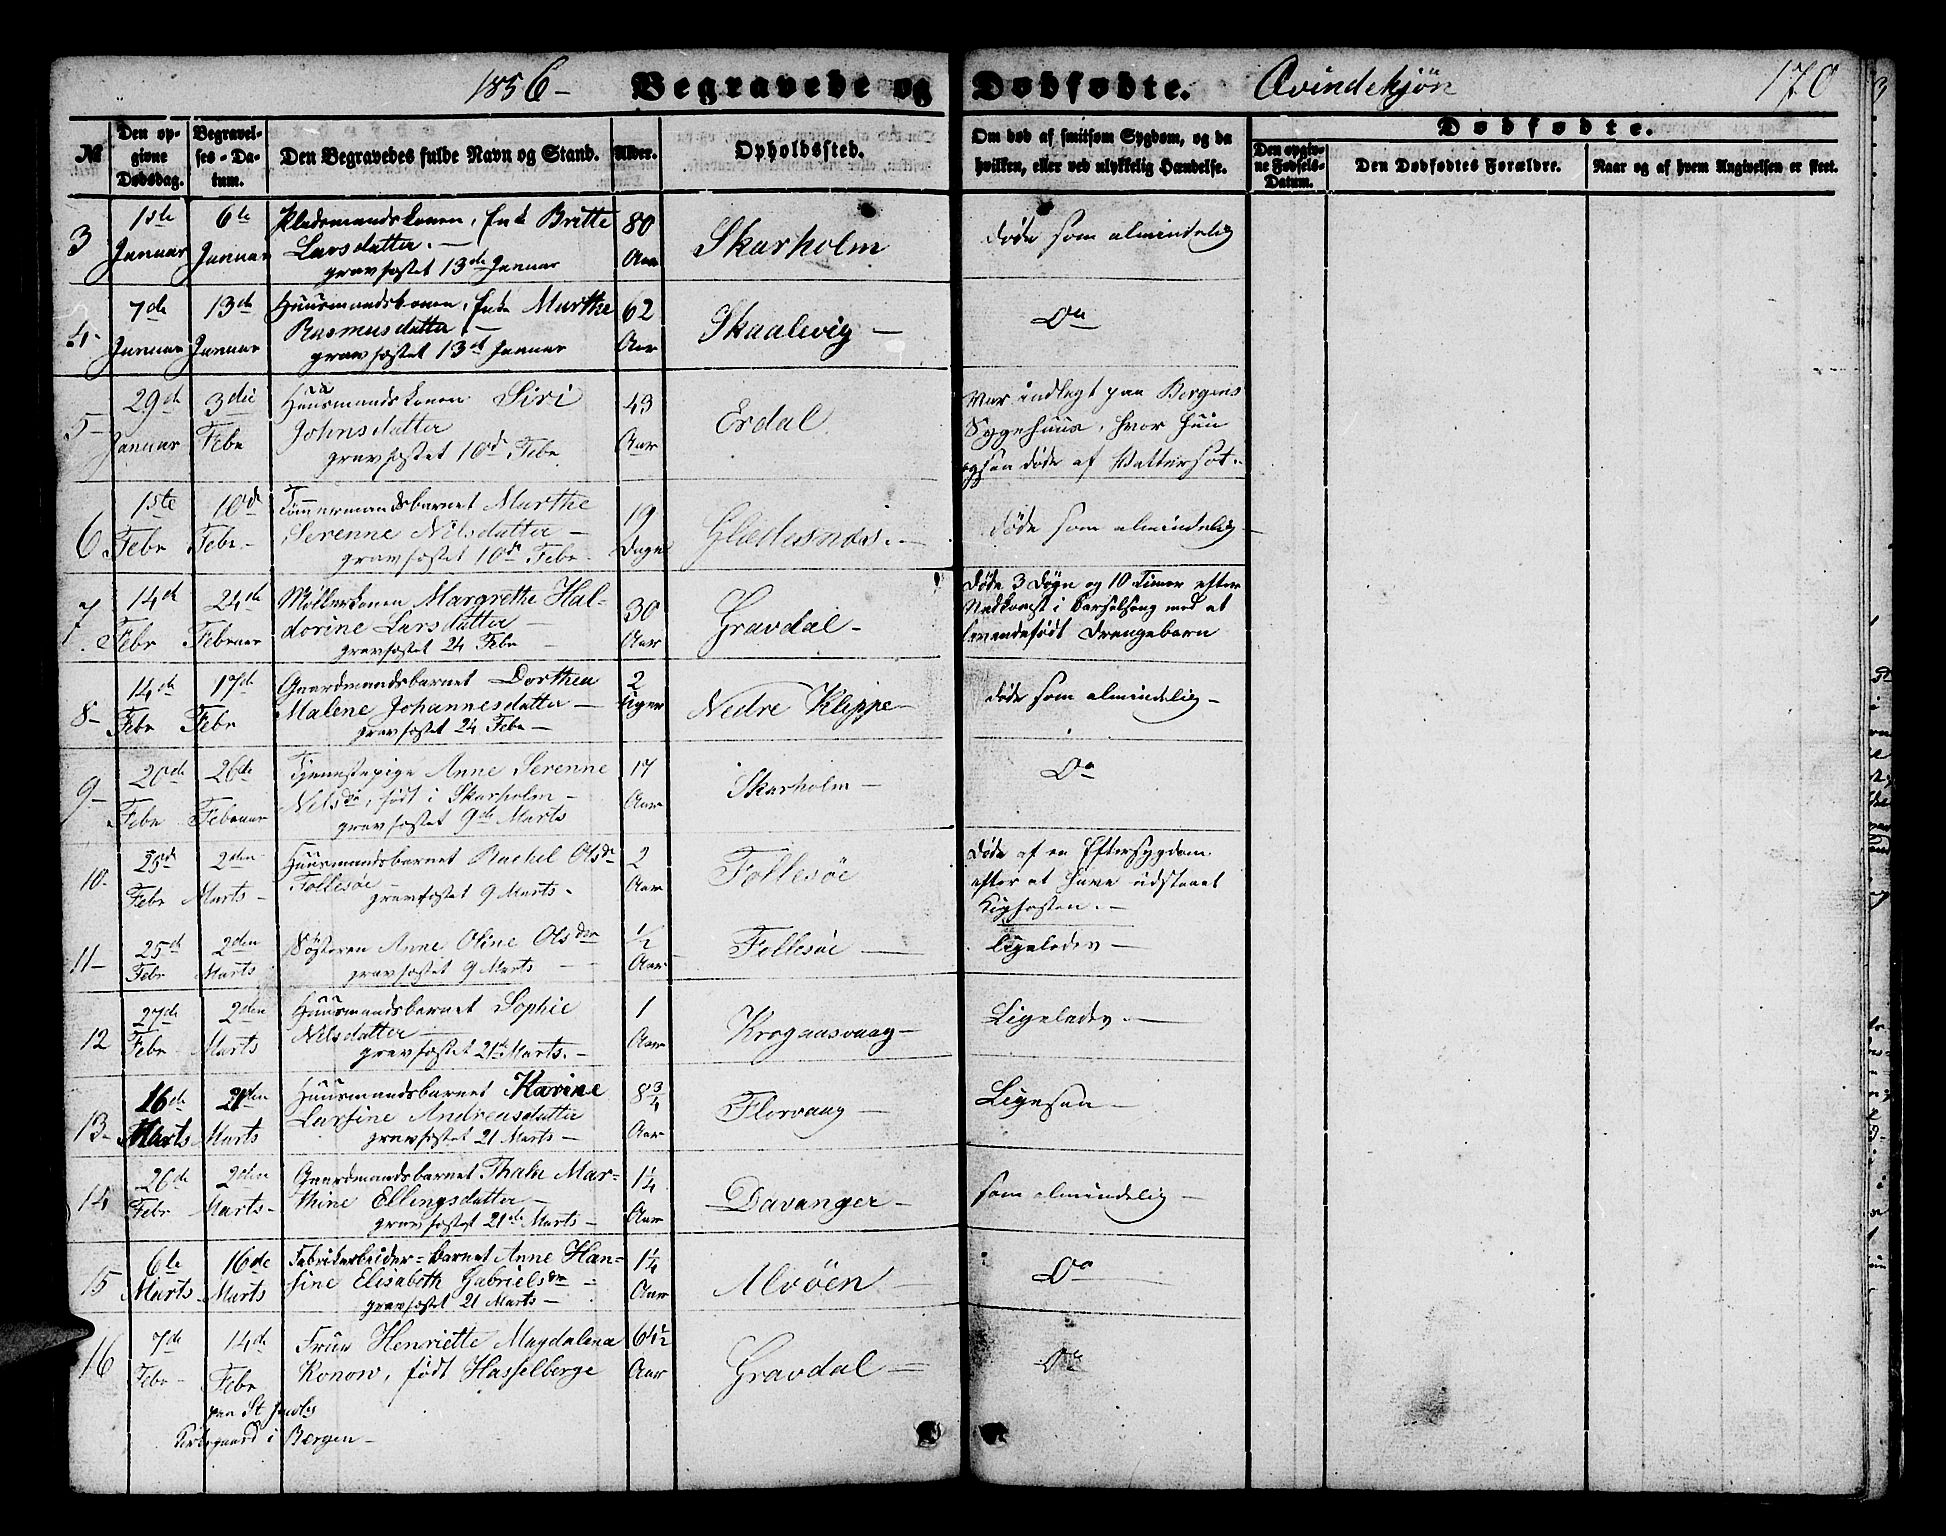 1856 - Begravede og Dødfødte. Qvindekjøn 170
№
Den opgivne Dødsdag.
Begravelses-Datum.
Den Begravedes fulde Navn og Stand.
Alder.
Opholdssted.
Om død af smitsom Sygdom, og da hvilken, eller ved ulykkelig Hændelse.
Dødfødte.
Den opgivne Fødsels-Datum.
Den Dødfødtes Forældre.
Naar og af hvem Angivelsen er skeet.
3 1ste Januar 6te Januar
Enk Britte
Larsdatter. -
gravfæstet 13de Januar
80 Aar
Skarholm
døde som almindelig
4- 7de Januar 13de Januar
Huusmandskonen, Enk Marthe
Rasmusdatter -
gravfæstet 13de Januar
62 Aar
Skaalevig -
Do
5- 29de Januar 3die Febr
Huusmandskonen Siri
Johnsdatter
gravfæstet 10de Febr
43 Aar
Erdal
Var indlagt paa Bergens
Sygehuus, hvor hun
ogsaa døde af Vattersot.
6 1ste Febr 10de Febr-
Tømmermandsbarnet Marthe
Serenne Nilsdatter -
gravfæstet 10de Febr.
19 Dage
døde som almindelig -
7 14de Febr 24de Februar
Møllerkonen Margrethe Hal-
dorine Larsdatter -
gravfæstet 24 Febr -
30 Aar
Gravdal -
døde 3 Døgn og 10 Timer efter
Nedkomst i Barselseng med et
levendefødt Drengebarn
8- 14de Febr 17de Febr
Gaardmandsbarnet Dorthea
Malene Johannesdatter -
gravfæstet 24 Febr -
2 Uger
Nedre Kleppe -
døde som almindelig -
9- 20de Febr 26de Februar
Tjenestepige Anne Serenne
Nilsdr, født i Skarholm -
gravfæstet 9de Marts
17 Aar
Skarholm -
Do
10- 23d Febr 2den Marts -
Huusmandsbarnet Rachel Olsdr
Follesøe -
gravfæstet 9 Marts -
2 Aar
Follesøe
døde af en Eftersygdom
efter at have udstaaet
Kighosten. -
11- 25d Febr 2den Marts
Søsteren Anne Oline Olsdtr
gravfæstet 9 Marts -
1/2 Aar
Follesøe -
ligeledes -
12 27de Febr 2den Marts
Huusmandsbarnet Sophie
Nilsdatter -
gravfæstet 21de Marts. -
1 Aar
Krogaasvaag -
Ligeledes. -
13- 16de Marts 21den Marts
Huusmandsbarnet Karine
Larsine Andreasdatter
gravfæstet 21 Marts -
8 3/4 Aar
Florvaag -
Ligesaa -
14 26de Febr 2den Marts -
Gaardmandsbarnet Thale Mar-
thine Ellingsdatter -
gravfæstet 21de Marts -
1 1/4 Aar
Davanger -
som almindelig -
15 6te Marts 16de Marts
Fabrikarbeider=barnet Anne Han-
sine Elisabeth Gabrielsdr -
gravfæstet 21 Marts -
1 1/4 Aar
Alvøen -
Do
16 7de Febr - 14de Febr
paa St Jacobs
Kirkegaard i Bergen -
Frue Henriette Magdalena
Konow, født Hasselberge
64 1/2 Aar
Gravdal -
Do